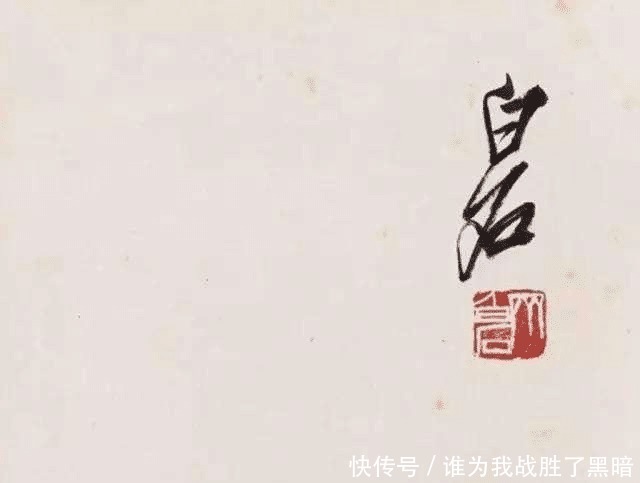 白石
快传号 / 谁为我战胜了黑暗